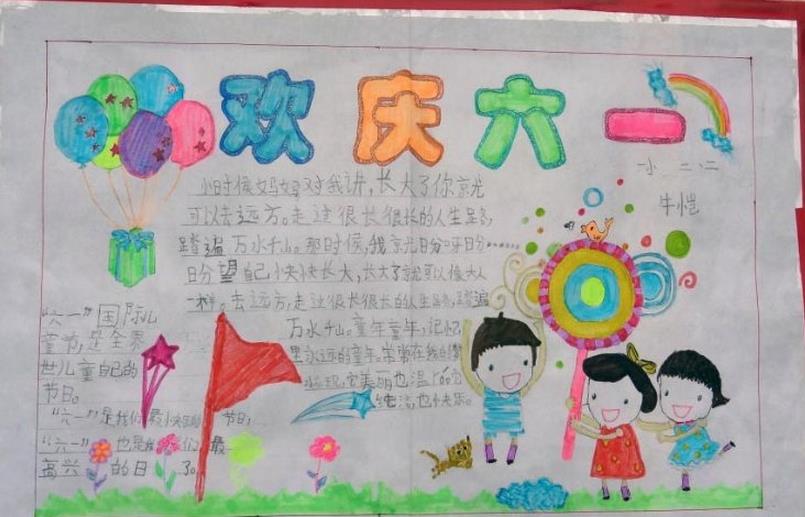 欢庆六一
一小 二·二
牛恺
小时侯妈妈对我讲，长大了你就
可以去远方。走过很长很长的人生路，
踏遍万水千山。那时候，我就日分呀日分
日分望自己快快长大，长大了就可以像大人
一样。去远方，走过很长很长的人生路，踏遍
万水千山。童年童年，记忆
里永远的童年，常常在我的
出现，它美丽也温
纯洁，也快乐。
“六一”国际儿
童节，是全
世儿童自己的
节日。
“六一”是我们最小的节日，
“六一”也是我们最
高兴的日了。